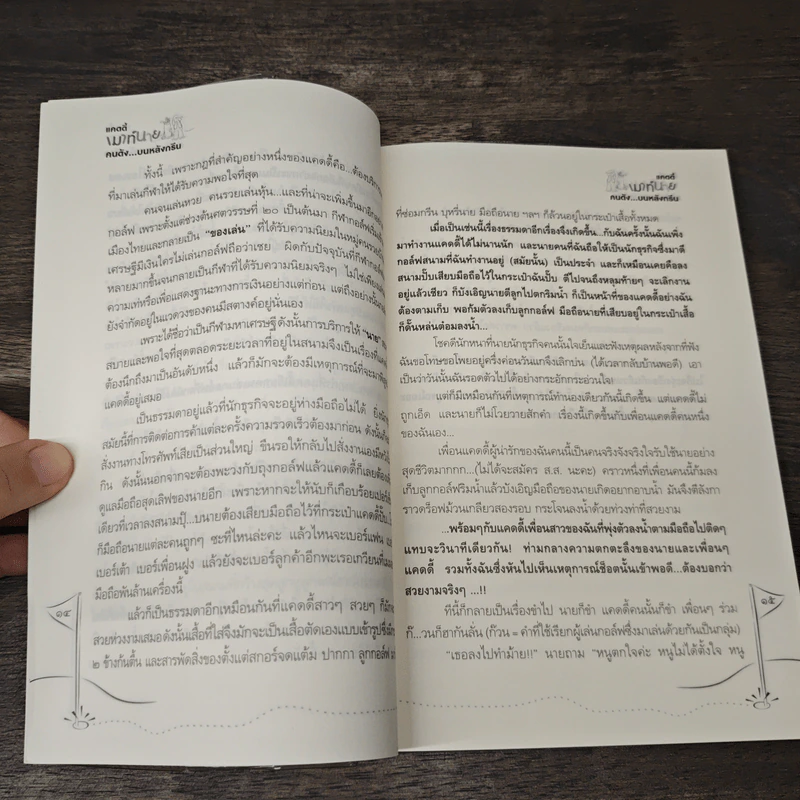 แคดดี้
เมาท์นาย
คนดัง...บนหลังกรีน
ทั้งนี้ เพราะกฎที่สำคัญอย่างหนึ่งของแคดดี้คือ...ต้องบริการ
ที่มาเล่นกีฬาให้ได้รับความพอใจที่สุด
คนจนเล่นหวย คนรวยเล่นหุ้น...และที่น่าจะเพิ่มขึ้นมาอีก
กอล์ฟ เพราะตั้งแต่ช่วงต้นศตวรรษที่ ๒๐ เป็นต้นมา กีฬากอล์ฟ
เมืองไทยและกลายเป็น "ของเล่น" ที่ได้รับความนิยมในหมู่คนรวย
เศรษฐีมีเงินใครไม่เล่นกอล์ฟถือว่าเชย ผิดกับปัจจุบันที่กีฬากอล์ฟ
หลายมากขึ้นจนกลายเป็นกีฬาที่ได้รับความนิยมจริงๆ ไม่ใช่เพียง
ความเท่หรือเพื่อแสดงฐานะทางการเงินอย่างแต่ก่อน แต่ถึงอย่างนั้น
ยังจำกัดอยู่ในแวดวงของคนมีสตางค์อยู่นั่นเอง
เพราะได้ชื่อว่าเป็นกีฬามหาเศรษฐีดังนั้นการบริการให้ "นาย"
สบายและพอใจที่สุดตลอดระยะเวลาที่อยู่ในสนามจึงเป็นเรื่องที่
ต้องนึกถึงมาเป็นอันดับหนึ่ง แล้วก็มักจะต้องมีเหตุการณ์ที่จะมา
แคดดี้อยู่เสมอ
เป็นธรรมดาอยู่แล้วที่นักธุรกิจจะอยู่ห่างมือถือไม่ได้
สมัยนี้ที่การติดต่อการค้าแต่ละครั้งความรวดเร็วต้องมาก่อน
สั่งงานทางโทรศัพท์เสียเป็นส่วนใหญ่ ขืนรอให้กลับไปสั่งงานเอง
กิน ดังนั้นนอกจากจะต้องพะวงกับถุงกอล์ฟแล้วแคดดี้ก็เลยต้อง
ดูแลมือถือสุดเลิฟของนายอีก เพราะหากจะให้นับก็เกือบร้อย
เดียวที่เวลาลงสนามปุ๊...บนายต้องเสียบมือถือไว้ที่กระเป๋าแคดดี้ปั๊บ
ก็มือถือนายแต่ละคนถูกๆ ซะที่ไหนล่ะคะ แล้วไหนจะเบอร์แฟน
เบอร์เต้า เบอร์เพื่อนฝูง แล้วยังจะเบอร์ลูกค้าอีกพะเรอเกวียนที่
มือถือพันล้านเครื่องนี้
แล้วก็เป็นธรรมดาอีกเหมือนกันที่แคดดี้สาวๆ สวยๆ ก็มัก
สวยห่วงงามเสมอดังนั้นเสื้อที่ใส่จึงมักจะเป็นเสื้อตัดเองแบบเข้ารูป
๒ ข้างก้นตื้น และสารพัดสิ่งของตั้งแต่สกอร์จดแต้ม ปากกา ลูกกอล์ฟ
๑๔
แคดดี้
เมาท์นาย
คนดัง...บนหลังกรีน
ที่ซ่อมกรีน บุหรี่นาย มือถือนาย ฯลฯ ก็ล้วนอยู่ในกระเป๋าเสื้อทั้งหมด
เมื่อเป็นเช่นนี้เรื่องธรรมดาอีกเรื่องจึงเกิดขึ้น...กับฉันครั้งนั้นฉันเพิ่ง
มาทำงานแคดดี้ได้ไม่นานนัก และนายคนที่ฉันถือให้เป็นนักธุรกิจซึ่งมาตี
กอล์ฟสนามที่ฉันทำงานอยู่ (สมัยนั้น) เป็นประจำ และก็เหมือนเคยคือลง
สนามปั๊บเสียบมือถือไว้ในกระเป๋าฉันปั๊บ ตีไปจนถึงหลุมท้ายๆ จะเลิกงาน
อยู่แล้วเชียว ก็บังเอิญนายตีลูกไปตกริมน้ำ ก็เป็นหน้าที่ของแคดดี้อย่างฉัน
ต้องตามเก็บ พอก้มตัวลงเก็บลูกกอล์ฟ มือถือนายที่เสียบอยู่ในกระเป๋าเสื้อ
ก็ดั้นหล่นต๋อมลงน้ำ...
โชคดีนักหนาที่นายนักธุรกิจคนนั้นใจเย็นและฟังเหตุผลหลังจากที่ฟัง
ฉันขอโทษขอโพยอยู่ครึ่งค่อนวันแกจึงเลิกบ่น (ได้เวลากลับบ้านพอดี) เอา
เป็นว่าวันนั้นฉันรอดตัวไปได้อย่างกระอักกระอ่วนใจ!
แต่ก็มีเหมือนกันที่เหตุการณ์ทำนองเดียวกันนี้เกิดขึ้น แต่แคดดี้ไม่
ถูกเอ็ด และนายก็ไม่โวยวายสักคำ เรื่องนี้เกิดขึ้นกับเพื่อนแคดดี้คนหนึ่ง
ของฉันเอง...
เพื่อนแคดดี้ผู้น่ารักของฉันคนนี้เป็นคนจริงจังจริงใจรับใช้นายอย่าง
สุดชีวิตมากกก...(ไม่ได้จะสมัคร ส.ส. นะคะ) คราวหนึ่งที่เพื่อนคนนี้ก้มลง
เก็บลูกกอล์ฟริมน้ำแล้วบังเอิญมือถือของนายเกิดอยากอาบน้ำ มันจึงตีลังกา
ราวดร็อฟม้วนเกลียวสองรอบ กระโจนลงน้ำด้วยท่วงท่าที่สวยงาม
...พร้อมๆกับแคดดี้เพื่อนสาวของฉันที่พุ่งตัวลงน้ำตามมือถือไปติดๆ
แทบจะวินาทีเดียวกัน! ท่ามกลางความตกตะลึงของนายและเพื่อนๆ
แคดดี้ รวมทั้งฉันซึ่งหันไปเห็นเหตุการณ์ช็อตนั้นเข้าพอดี...ต้องบอกว่า
สวยงามจริงๆ ...!!
ทีนี้ก็กลายเป็นเรื่องขำไป นายก็ขำ แคดดี้คนนั้นก็ขำ เพื่อนๆ ร่วม
ก๊...วนก็ฮากันลั่น (ก๊วน = คำที่ใช้เรียกผู้เล่นกอล์ฟซึ่งมาเล่นด้วยกันเป็นกลุ่ม)
"เธอลงไปทำม้าย!!" นายถาม "หนูตกใจค่ะ หนูไม่ได้ตั้งใจ หนู
๑๕